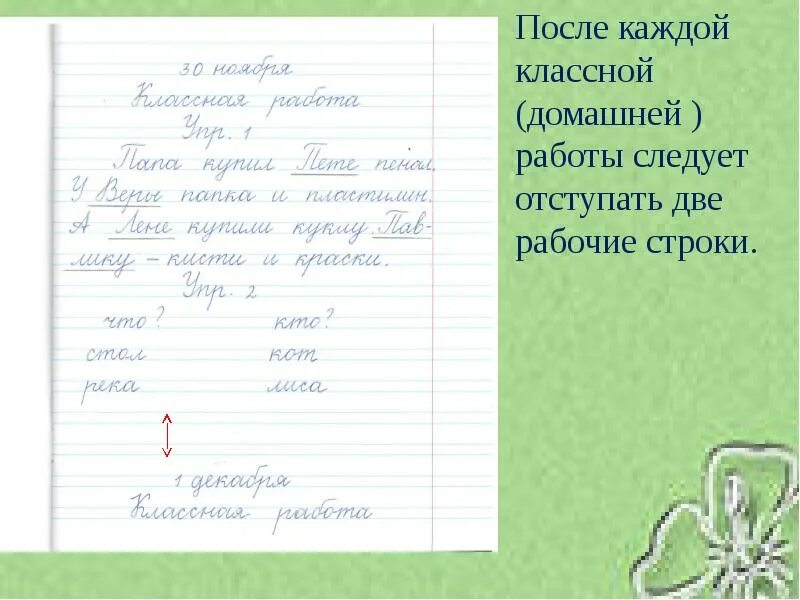 30 ноября
Классная работа
Упр. 1
Папа купил Пете пенал.
У Веры папка и пластилин.
А Лене купили куклу. Пав-
лику – кисти и краски.
Упр. 2
что? кто?
стол кот
река лиса
1 декабря
Классная работа
После каждой
классной
(домашней )
работы следует
отступать две
рабочие строки.